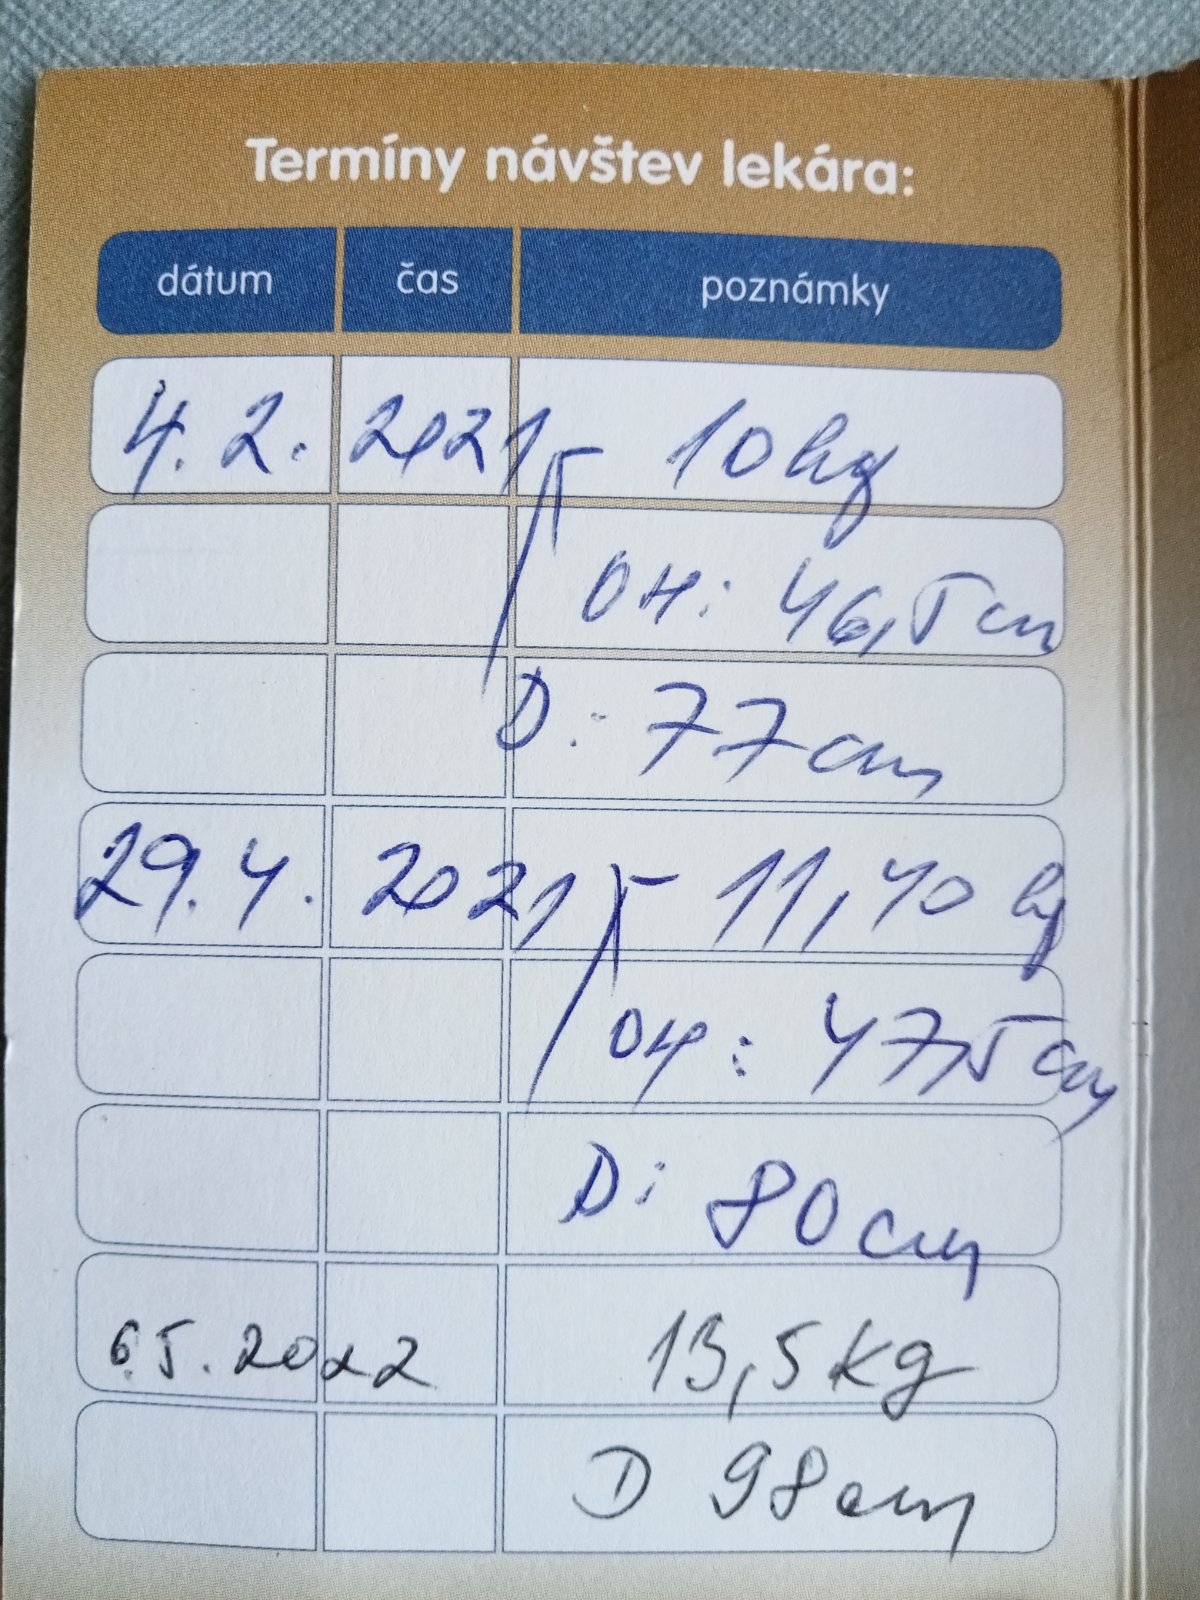 Termíny návštev lekára:
dátum čas poznámky
4. 2. 2021 - 10 kg
OH: 46,5 cm
D: 77 cm
29. 4. 2021 - 11,40 kg
OH: 47,5 cm
D: 80 cm
6.5.2022 13,5 kg
D 98 cm